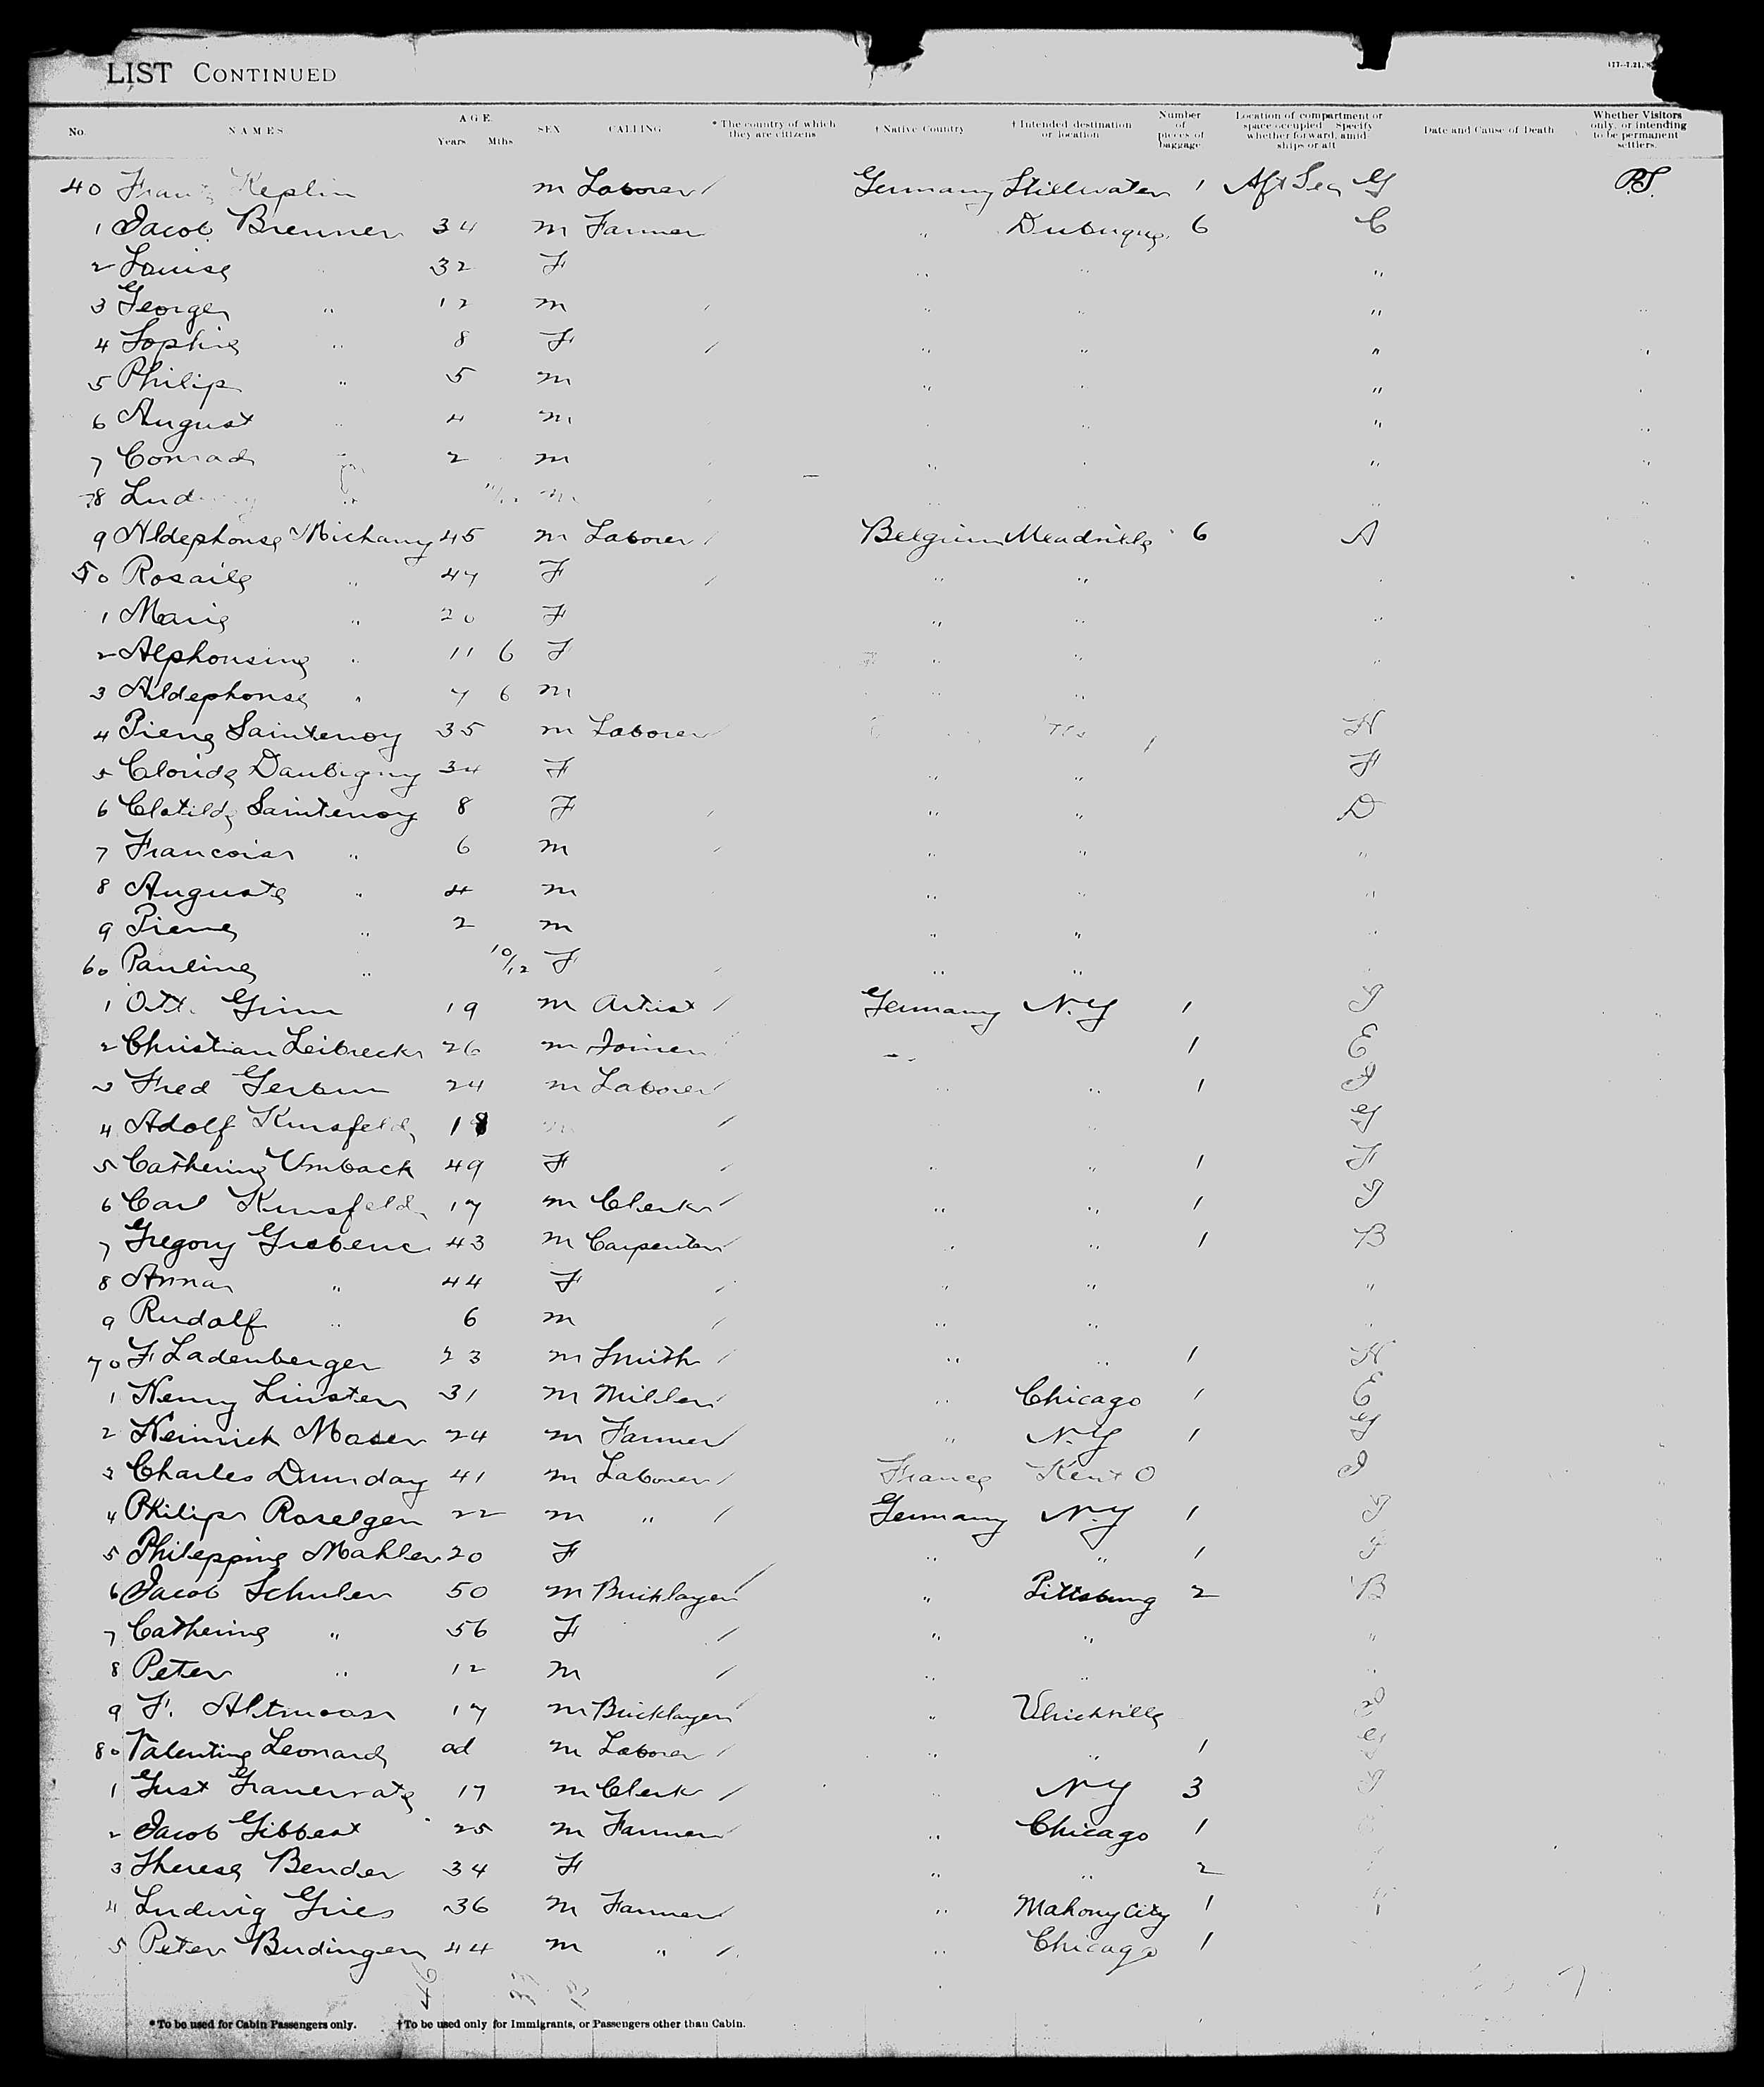 LIST CONTINUED
No. NAMES AGE Years Mths SEX CALLING * The country of which they are citizens † Native Country † Intended destination or location Number of pieces of baggage Location of compartment or space occupied Specify whether forward, amid ships or aft Date and Cause of Death Whether Visitors only, or intending to be permanent settlers.
40 Franz Keplin m Laborer Germany Stillwater 1 Aft G P.S.
1 Jacob Brenner 34 m Farmer " Dubuque 6 C
2 Louise 32 F " " "
3 George " 12 m " " " "
4 Sophie " 8 F " " " "
5 Philip " 5 m " " "
6 August " 4 m " " " "
7 Conrad " 2 m " " " "
8 Lud " m " " " "
9 Aldephonse 45 m Laborer Belgium Meadville 6 A "
50 Rosaile " 47 F " " "
1 Marie " 20 F " " " "
2 Alphonsine " 11 6 F " " " "
3 Aldephonse " 7 6 m " " "
4 Pierre Saintenoy 35 m Laborer H
5 Cloride Daubigny 34 F " " F
6 Clotilde Saintenoy 8 F " " D
7 Francois " 6 m " " "
8 Auguste " 4 m " " "
9 Pierre " 2 m " " "
60 Pauline " 10/12 F " "
1 Ott. Grim 19 m Artist Germany N.Y 1 I
2 Christian Leibreck 26 m Joiner " 1 E
3 Fred Gerbun 24 m Laborer " " 1 I
4 Adolf Kunsfeld 18 m " G
5 Catherine Umback 49 F " " 1 F
6 Carl Kunsfeld 17 m Clerk " " 1 I
7 Gregory Grebenc 43 m Carpenter " " 1 B
8 Anna " 44 F " " "
9 Rudolf " 6 m " " "
70 F Ladenberger 23 m Smith " " 1 H
1 Henry Linster 31 m Miller " Chicago 1 E
2 Heinrich Maser 24 m Farmer " N.Y 1 G
3 Charles Dunday 41 m Laborer France Kent O I
4 Philip Roselgen 22 m " Germany N.Y 1 I
5 Phileppine Mahler 20 F " " 1 F
6 Jacob Schuler 50 m Bricklayer " Pittsburg 2 B
7 Catherine " 56 F " " "
8 Peter " 12 m " " "
9 F. Altmoos 17 m Bricklayer " Uhrichville
80 Valentine Leonard ad m Laborer " " 1 G
1 Gust 17 m Clerk " N.Y 3 I
2 Jacob Gibbert 25 m Farmer " Chicago 1
3 Therese Bender 34 F " " 2
4 Ludwig Gries 36 m Farmer " Mahony City 1
5 Peter Budinger 44 m " " Chicago 1
* To be used for Cabin Passengers only. † To be used only for Immigrants, or Passengers other than Cabin.